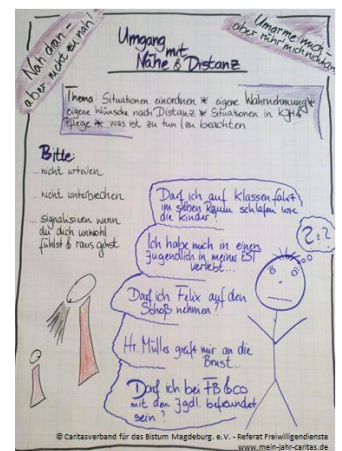 Nah dran -
aber nicht zu nah!
Umarme mich -
aber rühr mich nicht an
Umgang mit
Nähe & Distanz
Thema: Situationen einordnen * eigene Wahrnehmung *
eigene Wünsche nach Distanz * Situationen in KiTa &
Pflege * was ist zu tun / zu beachten
Bitte:
... nicht urteilen
... nicht unterbrechen
... signalisieren wenn
du dich unwohl
fühlst & raus gehst
Darf ich auf Klassenfahrt
im selben Raum schlafen wie
die Kinder?
Ich habe mich in einen
Jugendlich in meiner EST
verliebt...
Darf ich Felix auf den
Schoß nehmen?
Hr. Müller grabt mir an die
Brust...
Darf ich bei FB & co
mit den Jgdl. befreundet
sein?
? ? ?
© Caritasverband für das Bistum Magdeburg. e.V. - Referat Freiwilligendienste
www.mein-jahr-caritas.de